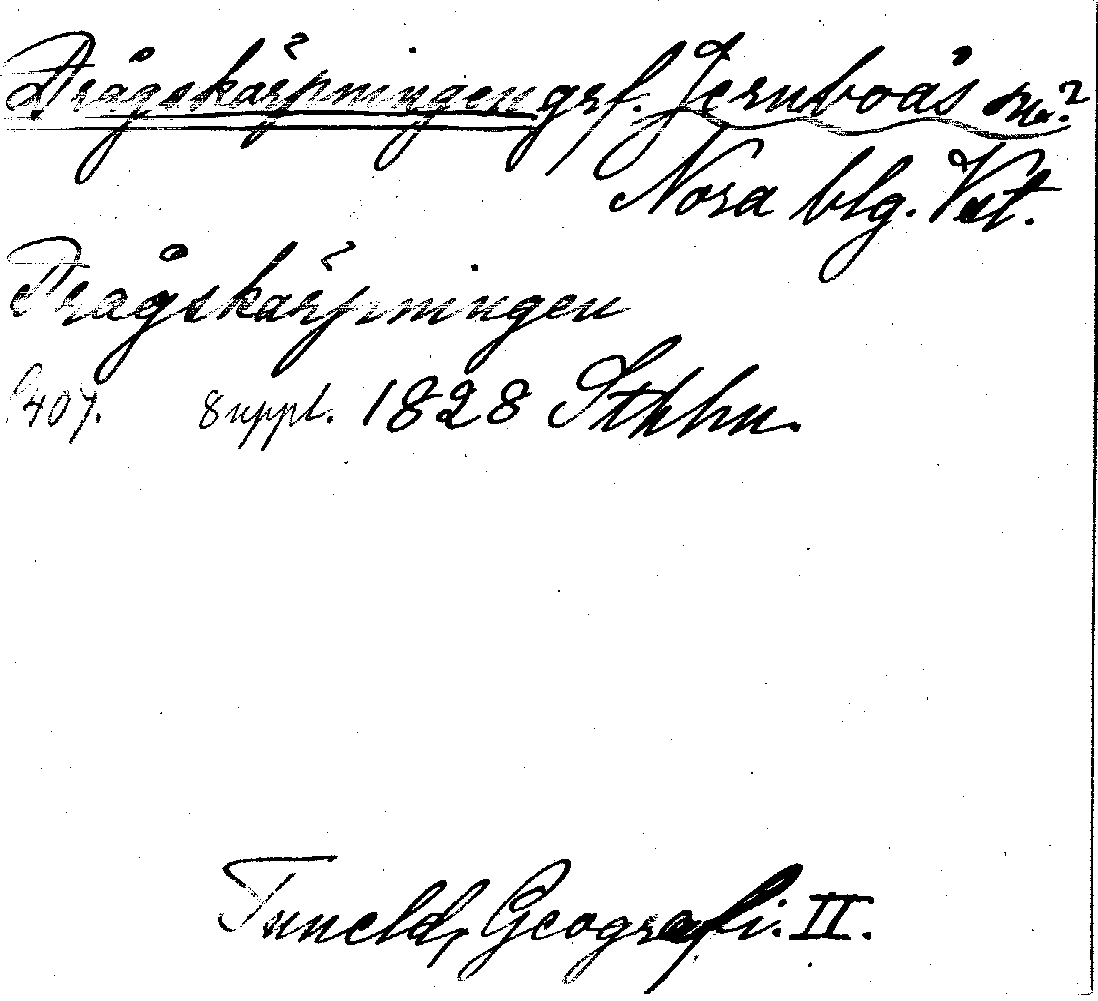 Drågskärpningen grf. Jernboås sn?
Nora blg. Vstl.
Drågskärpningen
S. 407. Suppl. 1828 Sthlm.
Tuneld, Geografi. II.